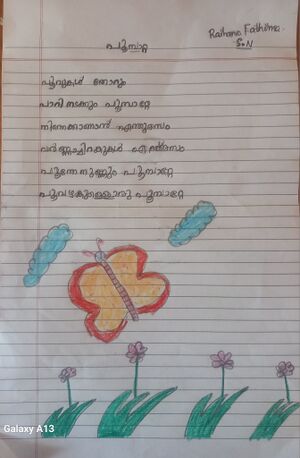 Raihana Fathima.
5.N
പൂമ്പാറ്റ
പൂവുകൾ തോറും
പാറി നടക്കും പൂമ്പാറ്റേ
നിന്നെക്കാണാൻ എന്തുരസം
വർണ്ണച്ചിറകുകൾ
പൂന്തേനുണ്ണും പൂമ്പാറ്റേ
പൂവഴകുള്ളൊരു പൂമ്പാറ്റേ
Galaxy A13